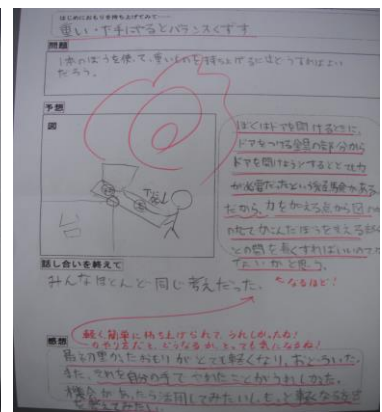 はじめにおもりを持ち上げてみて……
重い・片手でやるとバランスくずす
問題
1本のぼうを使って、重いものを持ち上げるにはどうすればよい
だろう。
予想
図
ぼくはドアを開けるときに、
ドアをつける金具の部分から
ドアを開けようとするととても力
が必要だったという経験がある。
だから、力を加える点から図
との間を長くすればいいので
ないかと思う。
台
下へ
話し合いを終えて
みんなほとんど同じ考えだった。
なるほど!
軽く簡単に持ち上げられて、うれしかったね!
感想
最初重かったおもりがとても軽くなり、おどろいた。
また、それを自分の手でやれたことがうれしかった。
機会があったら活用してみたいし、もっと軽くなる方法
を考えてみたい。